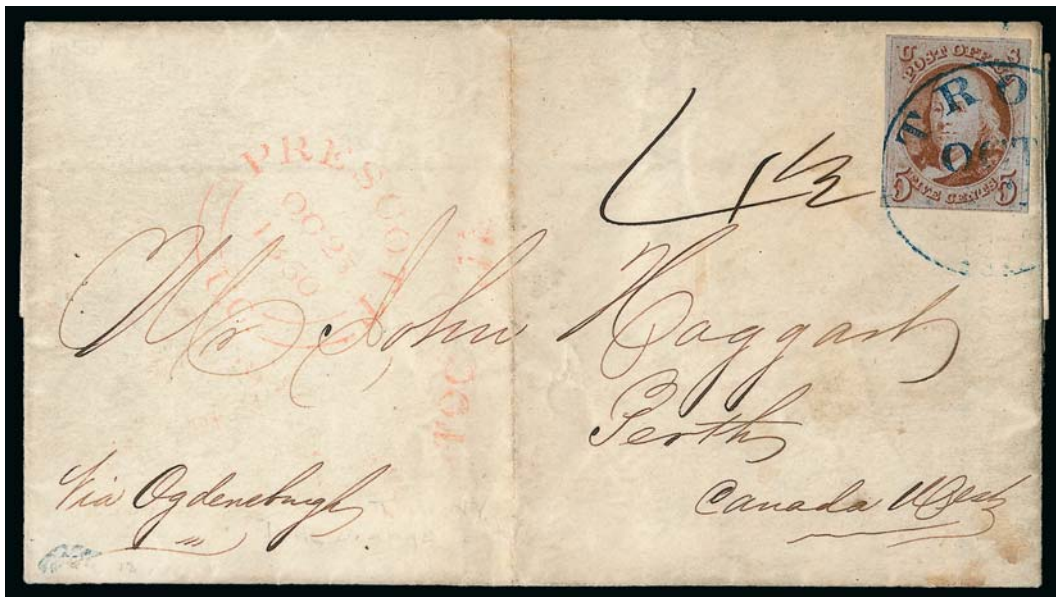 U S
POST OFFICE
TRO
OCT
5 FIVE CENTS 5
PRESCOTT
OC 23
1850
4 1/2
Mr John Haggart
Perth
Canada West
Via Ogdensburgh